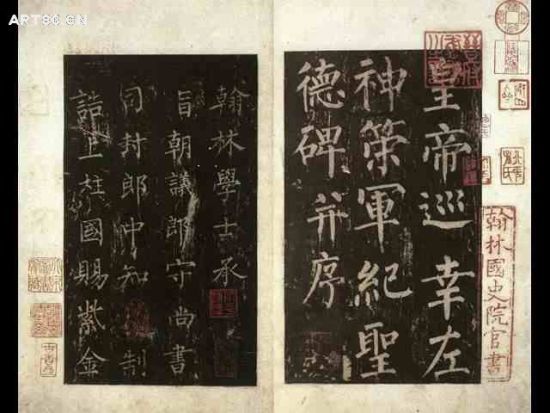 ART86.CN
皇帝巡幸左
神策軍紀聖
德碑并序
翰林學士承
旨朝議郎守尚書
司封郎中知制
誥上柱國賜紫金
翰林國史院官書